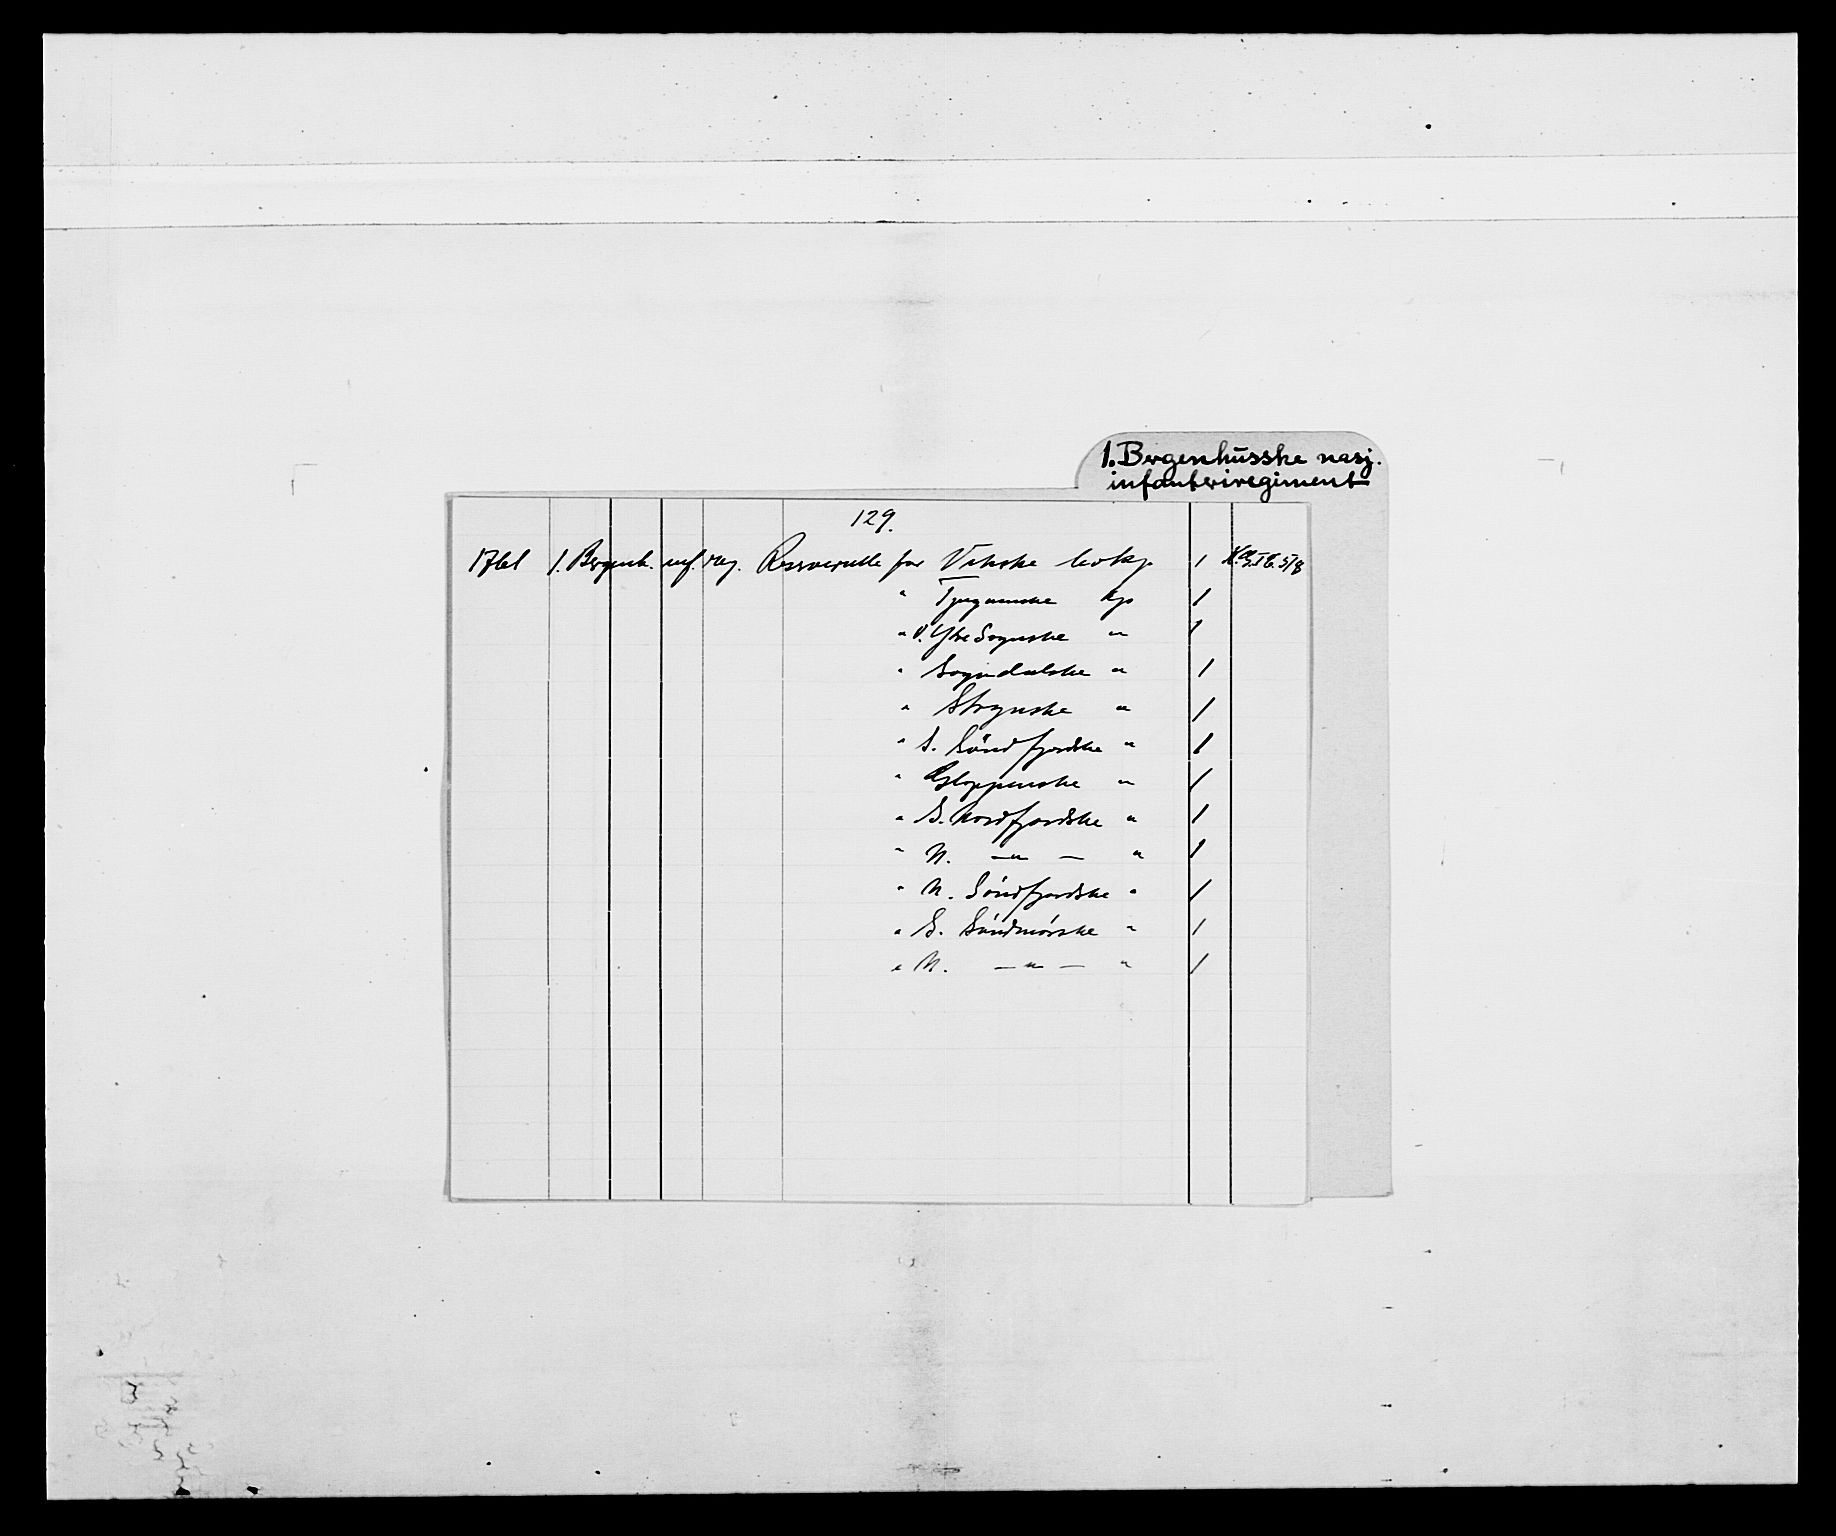 1. Bergenhusske nasj.
infanteriregiment
129.
1761 1. Bergenh. inf. reg. Reserverulle for Vikske livkp. 1
" kp 1
" Ø. Ytre Sognske " 1
" Sogndalske " 1
" Strynske " 1
" S. Søndfjordske " 1
" Gloppenske " 1
" S. Nordfjordske " 1
" N. — " — " 1
" N. Søndfjordske " 1
" S. Søndmørske " 1
" N. — " — " 1